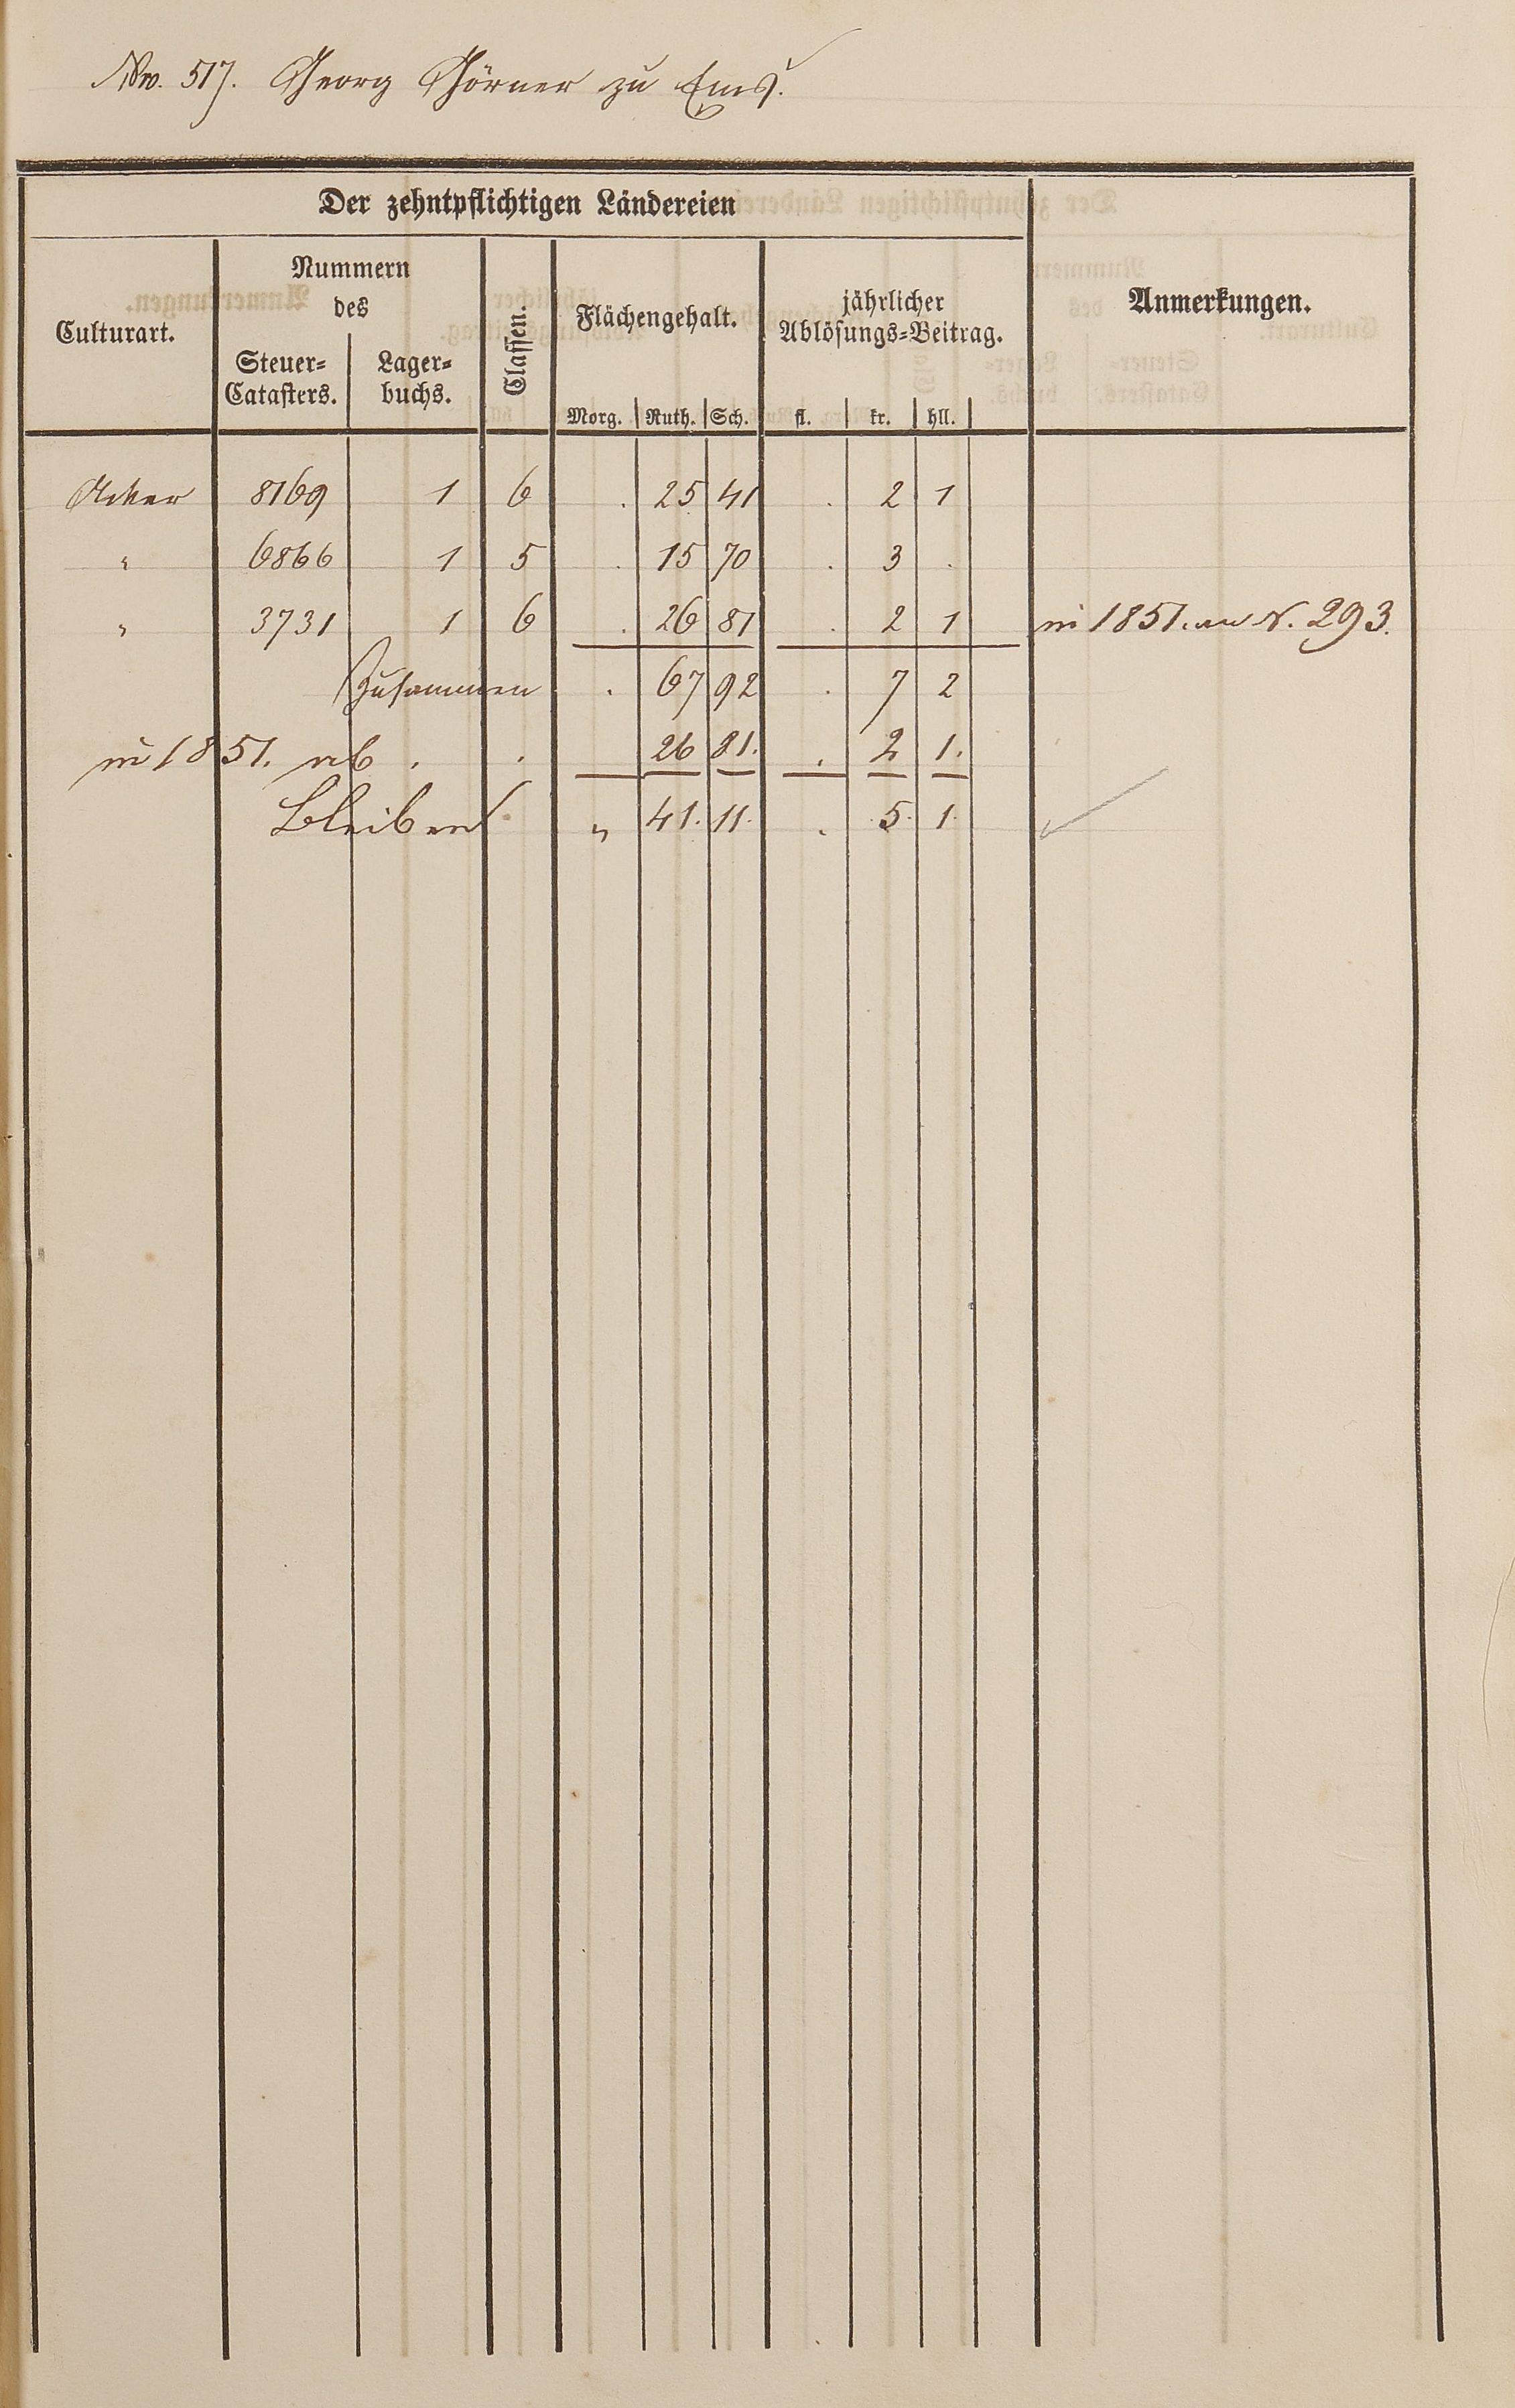 No. 517. Georg Görner zu Ems.
Der zehntpflichtigen Ländereien
Culturart.
Nummern
des
Steuer-
Catasters.
Lager-
buchs.
Classen.
Flächengehalt.
Morg. Ruth. Sch.
jährlicher
Ablösungs-Beitrag.
fl. kr. hll.
Anmerkungen.
Acker 8169 1 6 . 25 41 . 2 1
" 6866 1 5 . 15 70 . 3 .
" 3731 1 6 . 26 81 . 2 1 in 1851. an N. 293.
Zusammen . 67 92 . 7 2
in 1851. ab . . 26 81. . 2 1.
Bleiben . " 41. 11. . 5. 1.